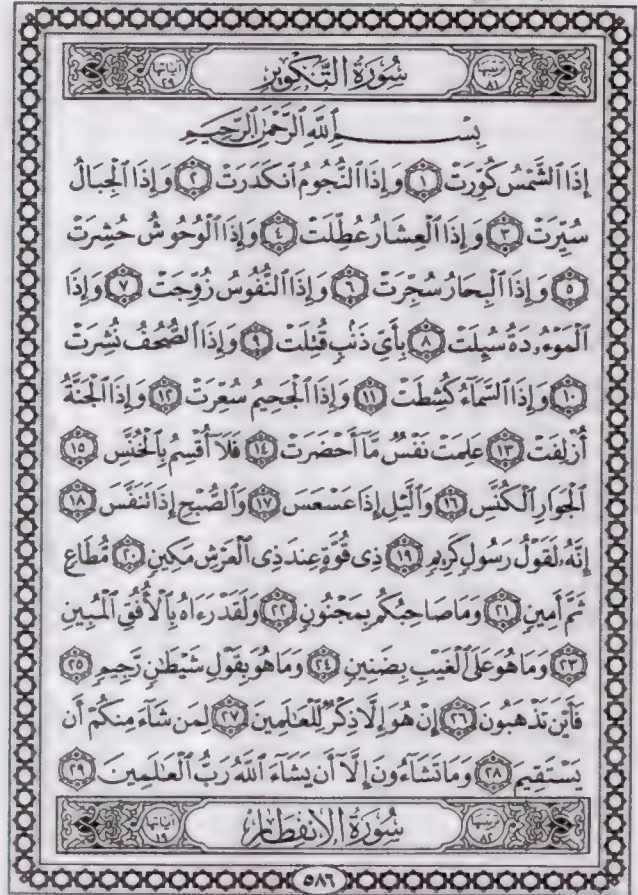 ترتيبها ٨١ سُورَةُ التَّكْوِيرِ آياتها ٢٩
بِسْمِ ٱللَّهِ ٱلرَّحْمَٰنِ ٱلرَّحِيمِ
إِذَا ٱلشَّمْسُ كُوِّرَتْ ١ وَإِذَا ٱلنُّجُومُ ٱنكَدَرَتْ ٢ وَإِذَا ٱلْجِبَالُ
سُيِّرَتْ ٣ وَإِذَا ٱلْعِشَارُ عُطِّلَتْ ٤ وَإِذَا ٱلْوُحُوشُ حُشِرَتْ
٥ وَإِذَا ٱلْبِحَارُ سُجِّرَتْ ٦ وَإِذَا ٱلنُّفُوسُ زُوِّجَتْ ٧ وَإِذَا
ٱلْمَوْءُۥدَةُ سُئِلَتْ ٨ بِأَىِّ ذَنۢبٍ قُتِلَتْ ٩ وَإِذَا ٱلصُّحُفُ نُشِرَتْ
١٠ وَإِذَا ٱلسَّمَآءُ كُشِطَتْ ١١ وَإِذَا ٱلْجَحِيمُ سُعِّرَتْ ١٢ وَإِذَا ٱلْجَنَّةُ
أُزْلِفَتْ ١٣ عَلِمَتْ نَفْسٌ مَّآ أَحْضَرَتْ ١٤ فَلَآ أُقْسِمُ بِٱلْخُنَّسِ ١٥
ٱلْجَوَارِ ٱلْكُنَّسِ ١٦ وَٱلَّيْلِ إِذَا عَسْعَسَ ١٧ وَٱلصُّبْحِ إِذَا تَنَفَّسَ ١٨
إِنَّهُۥ لَقَوْلُ رَسُولٍ كَرِيمٍ ١٩ ذِى قُوَّةٍ عِندَ ذِى ٱلْعَرْشِ مَكِينٍ ٢٠ مُّطَاعٍ
ثَمَّ أَمِينٍ ٢١ وَمَا صَاحِبُكُم بِمَجْنُونٍ ٢٢ وَلَقَدْ رَءَاهُ بِٱلْأُفُقِ ٱلْمُبِينِ
٢٣ وَمَا هُوَ عَلَى ٱلْغَيْبِ بِضَنِينٍ ٢٤ وَمَا هُوَ بِقَوْلِ شَيْطَٰنٍ رَّجِيمٍ ٢٥
فَأَيْنَ تَذْهَبُونَ ٢٦ إِنْ هُوَ إِلَّا ذِكْرٌ لِّلْعَٰلَمِينَ ٢٧ لِمَن شَآءَ مِنكُمْ أَن
يَسْتَقِيمَ ٢٨ وَمَا تَشَآءُونَ إِلَّآ أَن يَشَآءَ ٱللَّهُ رَبُّ ٱلْعَٰلَمِينَ ٢٩
ترتيبها ٨٢ سُورَةُ الِانفِطَارِ آياتها ١٩
٥٨٦